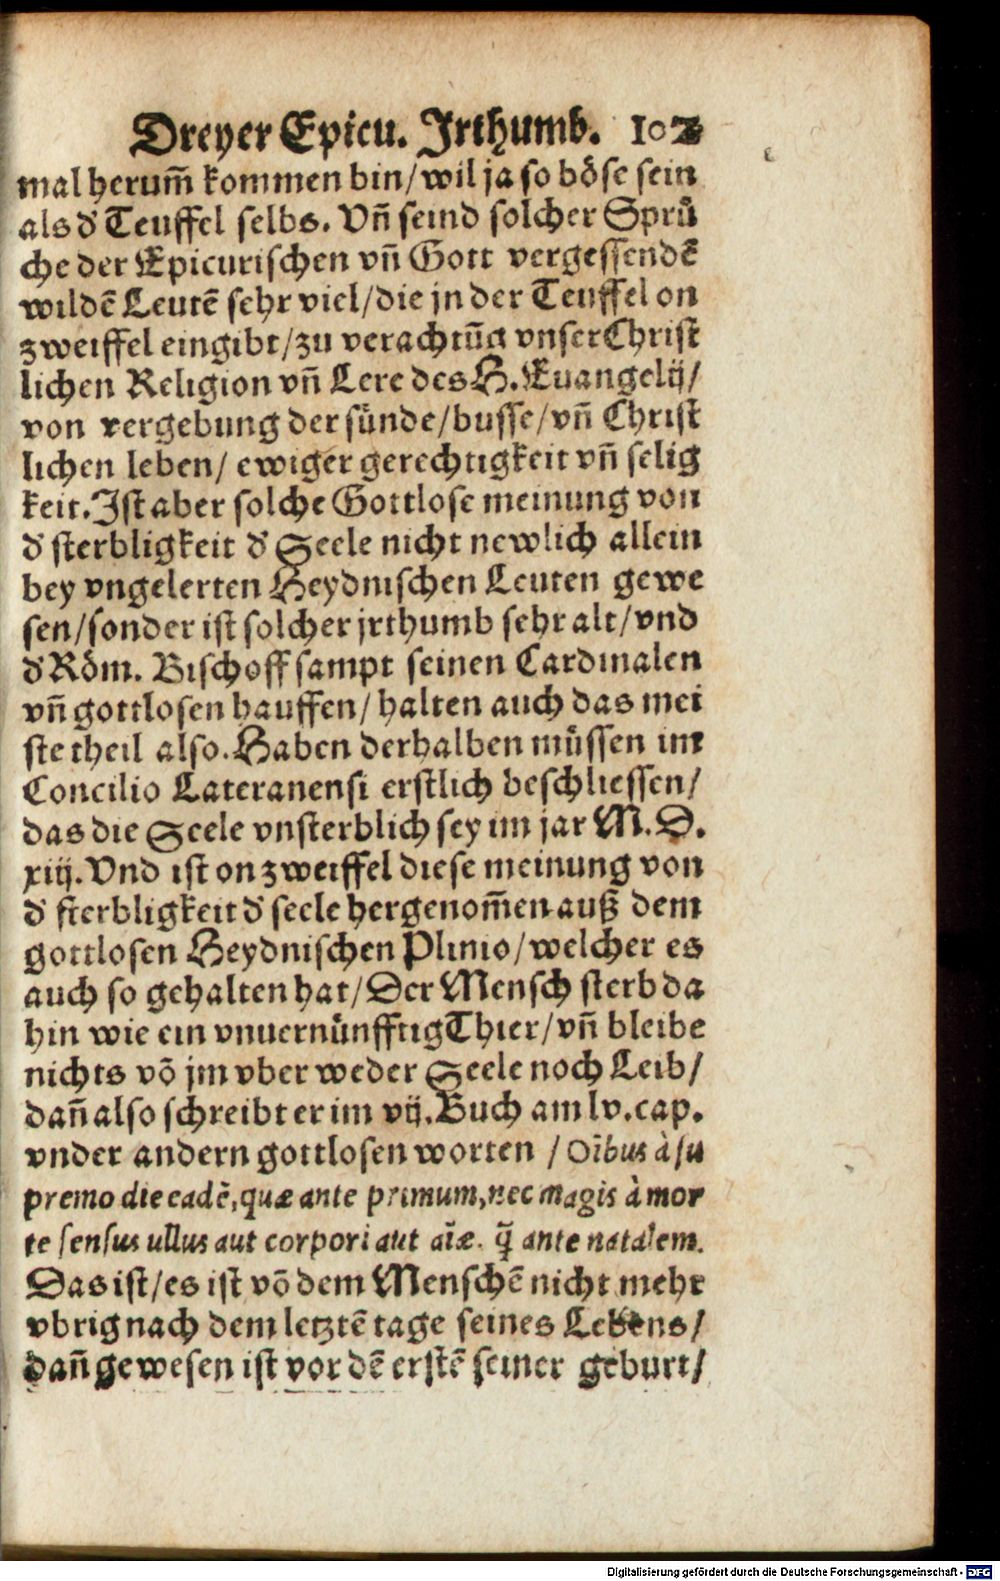 Dreyer Epicu. Jrthumb. 102
mal herum̃ kommen bin/ wil ja so böse sein
als d' Teuffel selbs. Vñ seind solcher Sprü
che der Epicurischen vñ Gott vergessendẽ
wildẽ Leutẽ sehr viel/ die jn der Teuffel on
zweiffel eingibt/ zu verachtũg vnser Christ
lichen Religion vñ Lere des H. Euangelij/
von vergebung der sünde/ busse/ vñ Christ
lichen leben/ ewiger gerechtigkeit vñ selig
keit. Jst aber solche Gottlose meinung von
d' sterbligkeit d' Seele nicht newlich allein
bey vngelerten Heydnischen Leuten gewe
sen/ sonder ist solcher jrthumb sehr alt/ vnd
d' Röm. Bischoff sampt seinen Cardinalen
vñ gottlosen hauffen/ halten auch das mei
ste theil also. Haben derhalben müssen im
Concilio Lateranensi erstlich beschliessen/
das die Seele vnsterblich sey im jar M. D.
xiij. Vnd ist on zweiffel diese meinung von
d' sterbligkeit d' seele hergenom̃en auß dem
gottlosen Heydnischen Plinio/ welcher es
auch so gehalten hat/ Der Mensch sterb da
hin wie ein vnuernünfftig Thier/ vñ bleibe
nichts võ jm vber weder Seele noch Leib/
dañ also schreibt er im vij. Buch am lv. cap.
vnder andern gottlosen worten / Oĩbus à su
premo die eadẽ, quæ ante primum, nec magis à mor
te sensus ullus aut corpori aut aĩæ. q̃ ante natalem.
Das ist/ es ist võ dem Menschẽ nicht mehr
vbrig nach dem letztẽ tage seines Lebens/
dañ gewesen ist vor dẽ erstẽ seiner geburt/
Digitalisierung gefördert durch die Deutsche Forschungsgemeinschaft - DFG